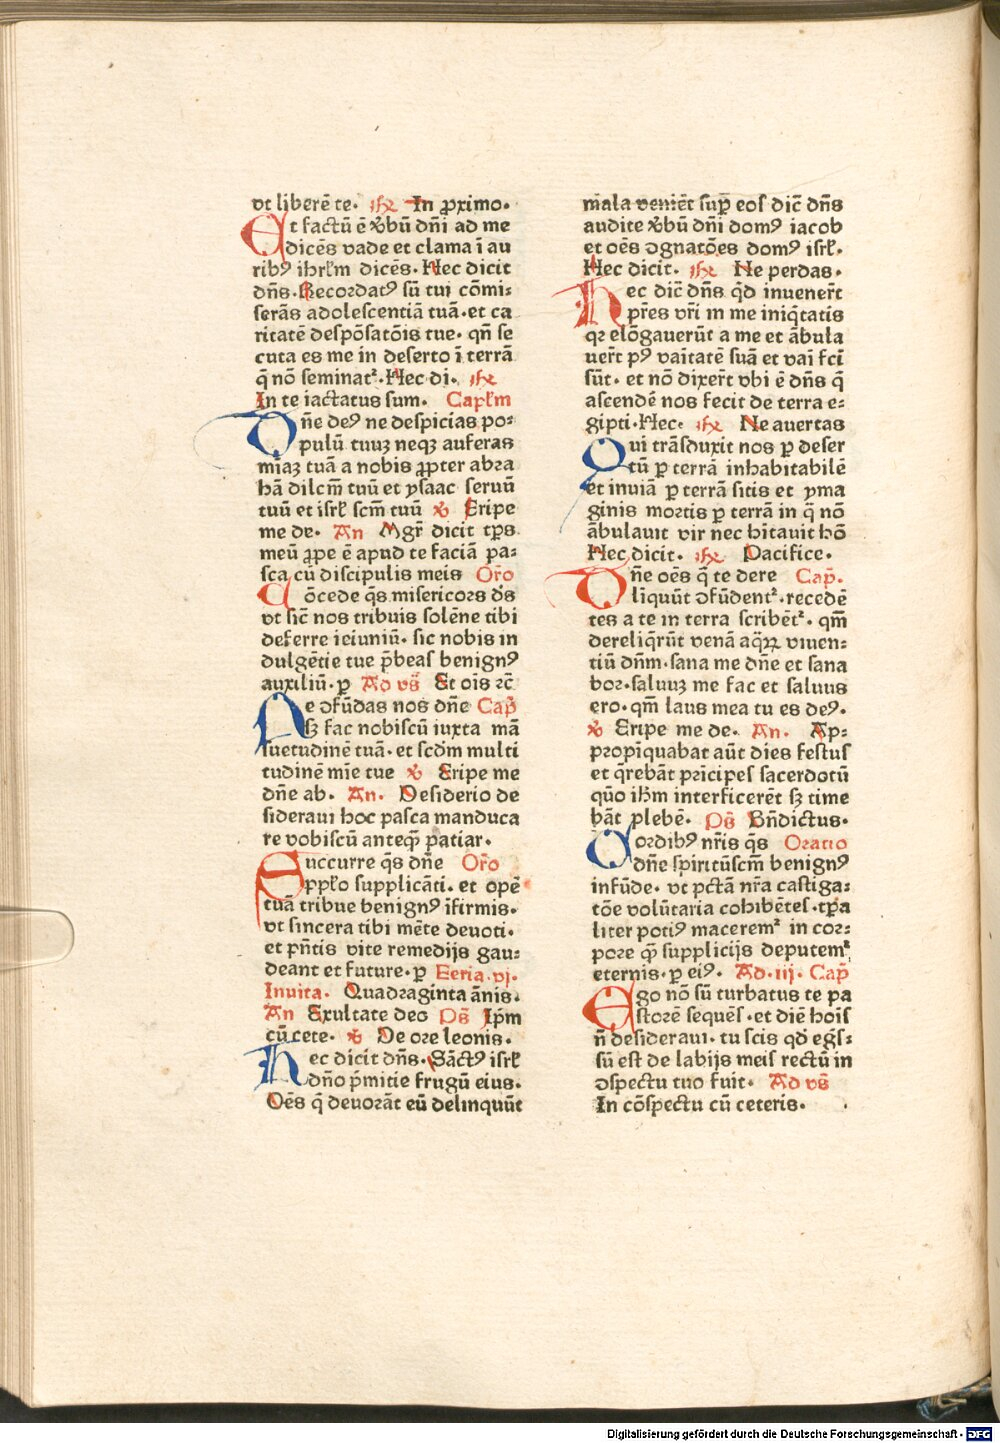 vt liberēte. ꝶ In ꝓximo.
Et factū ē v̾bū dn̄i ad me
dicēs vade et clama ī au
ribꝰ ihrl̄m dicēs. Hec dicit
dn̄s. Recordatꝰ sū tui cōmi-
serās adolescentiā tuā. et ca
ritatē despōsatōis tue. qn̄ se
cuta es me in deserto ī terrā
q̄ nō seminat᷑. Hec di. ꝶ
In te iactatus sum. Capl̄m
Dn̄e deꝰ ne despicias po-
pulū tuuꝫ neqꝫ auferas
mīaꝫ tuā a nobis ꝓpter abra
hā dilcm̄ tuū et ysaac seruū
tuū et isrl̄ scm̄ tuū ℣ Eripe
me de. An Mgr̄ dicit tp̄s
meū ꝓpe ē apud te faciā pa-
sca cū discipulis meis Or̄o
Cōcede q̄s misericors ds̄
vt sic̄ nos tribuis solēne tibi
deferre ieiuniū. sic nobis in
dulgētie tue p̄beas benignꝰ
auxiliū. ꝑ Ad vs̄ Et oīs ⁊c̄
Ne ꝯfūdas nos dn̄e Cap̄
sꝫ fac nobiscū iuxta mā
suetudinē tuā. et scd̄m multi
tudinē mīe tue ℣ Eripe me
dn̄e ab. An. Desiderio de
sideraui hoc pasca manduca
re vobiscū anteqꝫ patiar.
Succurre q̄s dn̄e Or̄o
ppl̄o supplicāti. et opē
tuā tribue benignꝰ īfirmis.
vt sincera tibi mēte deuoti.
et pn̄tis vite remedijs gau-
deant et future. ꝑ Feria. vj.
Inuita. Quadraginta ānis.
An Exultate deo Ps̄ Ip̄m
cū cete. ℣ De ore leonis.
Hec dicit dn̄s. Sāctꝰ isrl̄
dn̄o p̄mitie frugū eius.
Oēs q̄ deuorāt eū delinquūt
mala veniēt suꝑ eos dic̄ dn̄s
audite v̾bū dn̄i domꝰ iacob
et oēs ꝯgnatōes domꝰ isrl̄.
Hec dicit. ꝶ Ne perdas.
Hec dic̄ dn̄s qd̄ inuener̄t
pr̄es vr̄i in me iniq̄tatis
qꝛ elōgauerūt a me et ābula
uer̄t pꝰ vaītatē suā et vaī fcī
sūt. et nō dixer̄t vbi ē dn̄s q̄
ascendē nos fecit de terra e-
gipti. Hec. ꝶ Ne auertas
Qui trāsduxit nos ꝑ deser
tū ꝑ terrā inhabitabilē
et inuiā ꝑ terrā sitis et yma
ginis mortis ꝑ terrā in q̄ nō
ābulauit vir nec hītauit hō
Hec dicit. ꝶ Pacifice.
Dn̄e oēs q̄ te dere Cap̄.
līquūt ꝯfūdent᷑. recedē
tes a te in terra scribēt᷑. qm̄
dereliq̄rūt venā aq̄ꝝ viuen-
tiū dn̄m. sana me dn̄e et sana
bor. saluuꝫ me fac et saluus
ero. qm̄ laus mea tu es deꝰ.
℣ Eripe me de. An. Ap-
propīquabat aūt dies festus
et q̄rebāt prīcipes sacerdotū
quō ihm̄ interficerēt sꝫ time
bāt plebē. Ps̄ Bn̄dictus.
Cordibꝰ nr̄is q̄s Oratio
dn̄e spiritūscm̄ benignꝰ
infūde. vt pctā nr̄a castiga-
tōe volūtaria cohibētes. tp̄a
liter potiꝰ macerem᷑ in cor-
pore q̄ supplicijs deputem᷑
eternis. ꝑ eiꝰ. Ad. iij. Cap̄
Ego nō sū turbatus te pa
storē sequēs. et diē hoīs
n̄ desideraui. tu scis qd̄ egs̄-
sū est de labijs meis rectū in
ꝯspectu tuo fuit. Ad vs̄
In cōspectu cū ceteris.
Digitalisierung gefördert durch die Deutsche Forschungsgemeinschaft - DFG